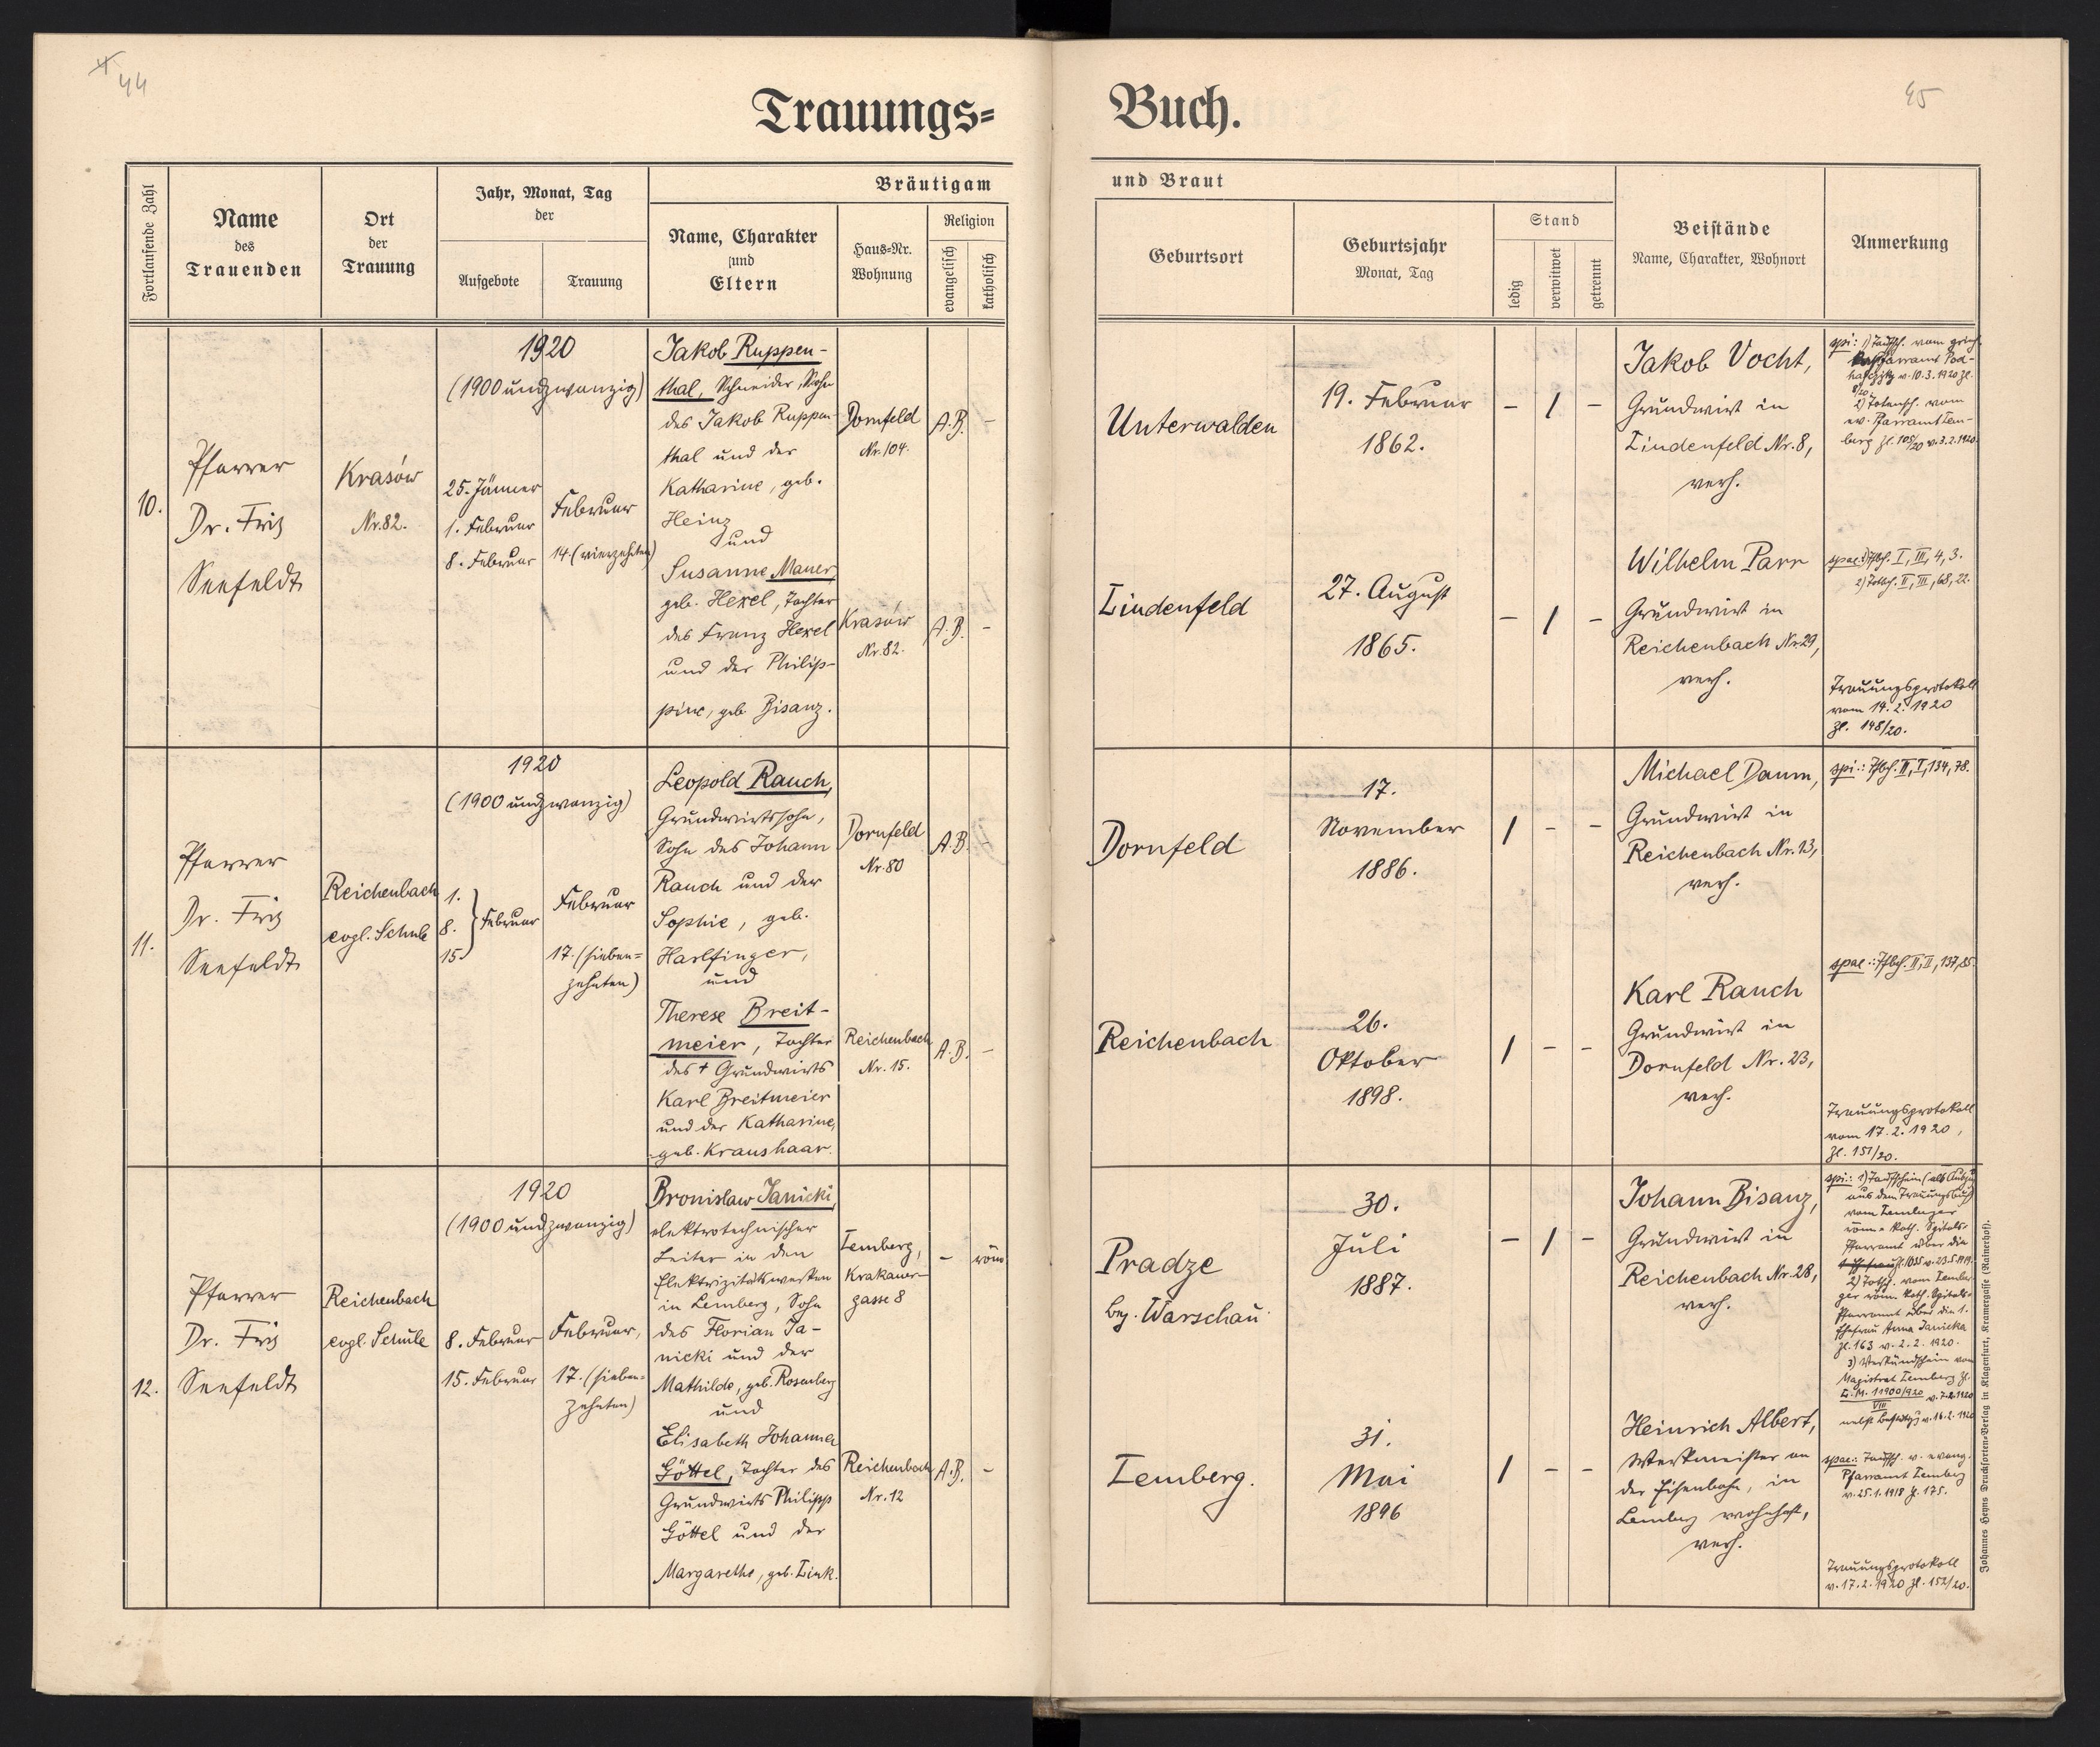 44
45
Trauungs-
Buch.
Fortlaufende Zahl
Name
des
Trauenden
Ort
der
Trauung
Jahr, Monat, Tag
der
Aufgebote
Trauung
Bräutigam
Name, Charakter
und
Eltern
Haus-Nr.
Wohnung
Religion
evangelisch
katholisch
und Braut
Geburtsort
Geburtsjahr
Monat, Tag
Stand
ledig
verwitwet
getrennt
Beistände
Name, Charakter, Wohnort
Anmerkung
10.
Pfarrer
Dr. Fritz
Seefeldt
Krasów
Nr. 82.
1920
(1900 und zwanzig)
25. Jänner
1. Februar
8. Februar
Februar
14. (vierzehnten)
Jakob Ruppen-
thal, Schneider, Sohn
des Jakob Ruppen-
thal und der
Katharine, geb.
Heinz
und
Susanne Mauer,
geb. Hexel, Tochter
des Franz Hexel
und der Philip-
pine, geb. Bisanz.
Dornfeld
Nr. 104.
A.B. -
Krasów
Nr. 82.
A.B. -
Unterwalden
19. Februar
1862.
- 1 -
Jakob Vocht,
Grundwirt in
Lindenfeld Nr. 8,
verh.
spi: 1) Taufsch. vom griech.
v. 10.3.1920 Zl.
2) Totensch. vom
ev. Pfarramt Lem-
berg Zl. 105/20 v. 3.2.1920.
Lindenfeld
27. August
1865.
- 1 -
Wilhelm Parr
Grundwirt in
Reichenbach Nr. 29,
verh.
spae: I, III, 4, 3.
2) II, III, 68, 22.
Trauungsprotokoll
vom 14.2.1920
Zl. 148/20.
11.
Pfarrer
Dr. Fritz
Seefeldt
Reichenbach
evgl. Schule
1920
(1900 und zwanzig)
1.
8. } Februar
15.
Februar
17. (sieben-
zehnten)
Leopold Rauch,
Grundwirtssohn,
Sohn des Johann
Rauch und der
Sophie, geb.
Harlfinger,
und
Therese Breit-
meier, Tochter
des † Grundwirts
Karl Breitmeier
und der Katharine,
geb. Kraushaar.
Dornfeld
Nr. 80
A.B.
Reichenbach
Nr. 15.
A.B. -
Dornfeld
17.
November
1886.
1 - -
Michael Daum,
Grundwirt in
Reichenbach Nr. 13,
verh.
spi.: Tfbch. II, I, 134, 78.
Reichenbach
26.
Oktober
1898.
1 - -
Karl Rauch
Grundwirt in
Dornfeld Nr. 23,
verh.
spae.: Tfbch. II, II, 137, 85.
Trauungsprotokoll
vom 17.2.1920,
Zl. 151/20.
12.
Pfarrer
Dr. Fritz
Seefeldt
Reichenbach
evgl. Schule
1920
(1900 und zwanzig)
8. Februar
15. Februar
Februar,
17. (sieben-
zehnten)
Bronislaw Janicki,
elektrotechnischer
Leiter in den
Elektrizitätswerken
in Lemberg, Sohn
des Florian Ja-
nicki und der
Mathilde, geb. Rosenberg
und
Elisabeth Johanna
Göttel, Tochter des
Grundwirts Philipp
Göttel und der
Margarethe, geb. Link.
Lemberg,
Krakauer-
gasse 8
- röm
Reichenbach
Nr. 12
A.B. -
Pradze
bez. Warschau
30.
Juli
1887.
- 1 -
Johann Bisanz,
Grundwirt in
Reichenbach Nr. 28,
verh.
spi.: 1) Taufschein (als Auszug
aus dem Trauungsbuch)
vom Lemberger
röm.-kath. Spitals-
Pfarramt über die
Zl. 1035 v. 23.5.1919.
2) Totsch. vom Lember-
ger röm. kath. Spitals-
Pfarramt über die 1.
Ehefrau Anna Janicka
Zl. 163 v. 2.2.1920.
3) Verkündschein vom
Magistrat Lemberg Zl.
11900/920 v. 7.2.1920
VIII
nebst v. 16.2.1920
Lemberg.
31.
Mai
1896
1 - -
Heinrich Albert,
Werkmeister an
der Eisenbahn, in
Lemberg wohnhaft,
verh.
spae.: Taufsch. v. evang.
Pfarramt Lemberg
v. 25.1.1918 Zl. 175.
Trauungsprotokoll
v. 17.2.1920 Zl. 152/20.
Johannes Heyns Drucksorten-Verlag in Klagenfurt, Kramergasse (Rainerhof).